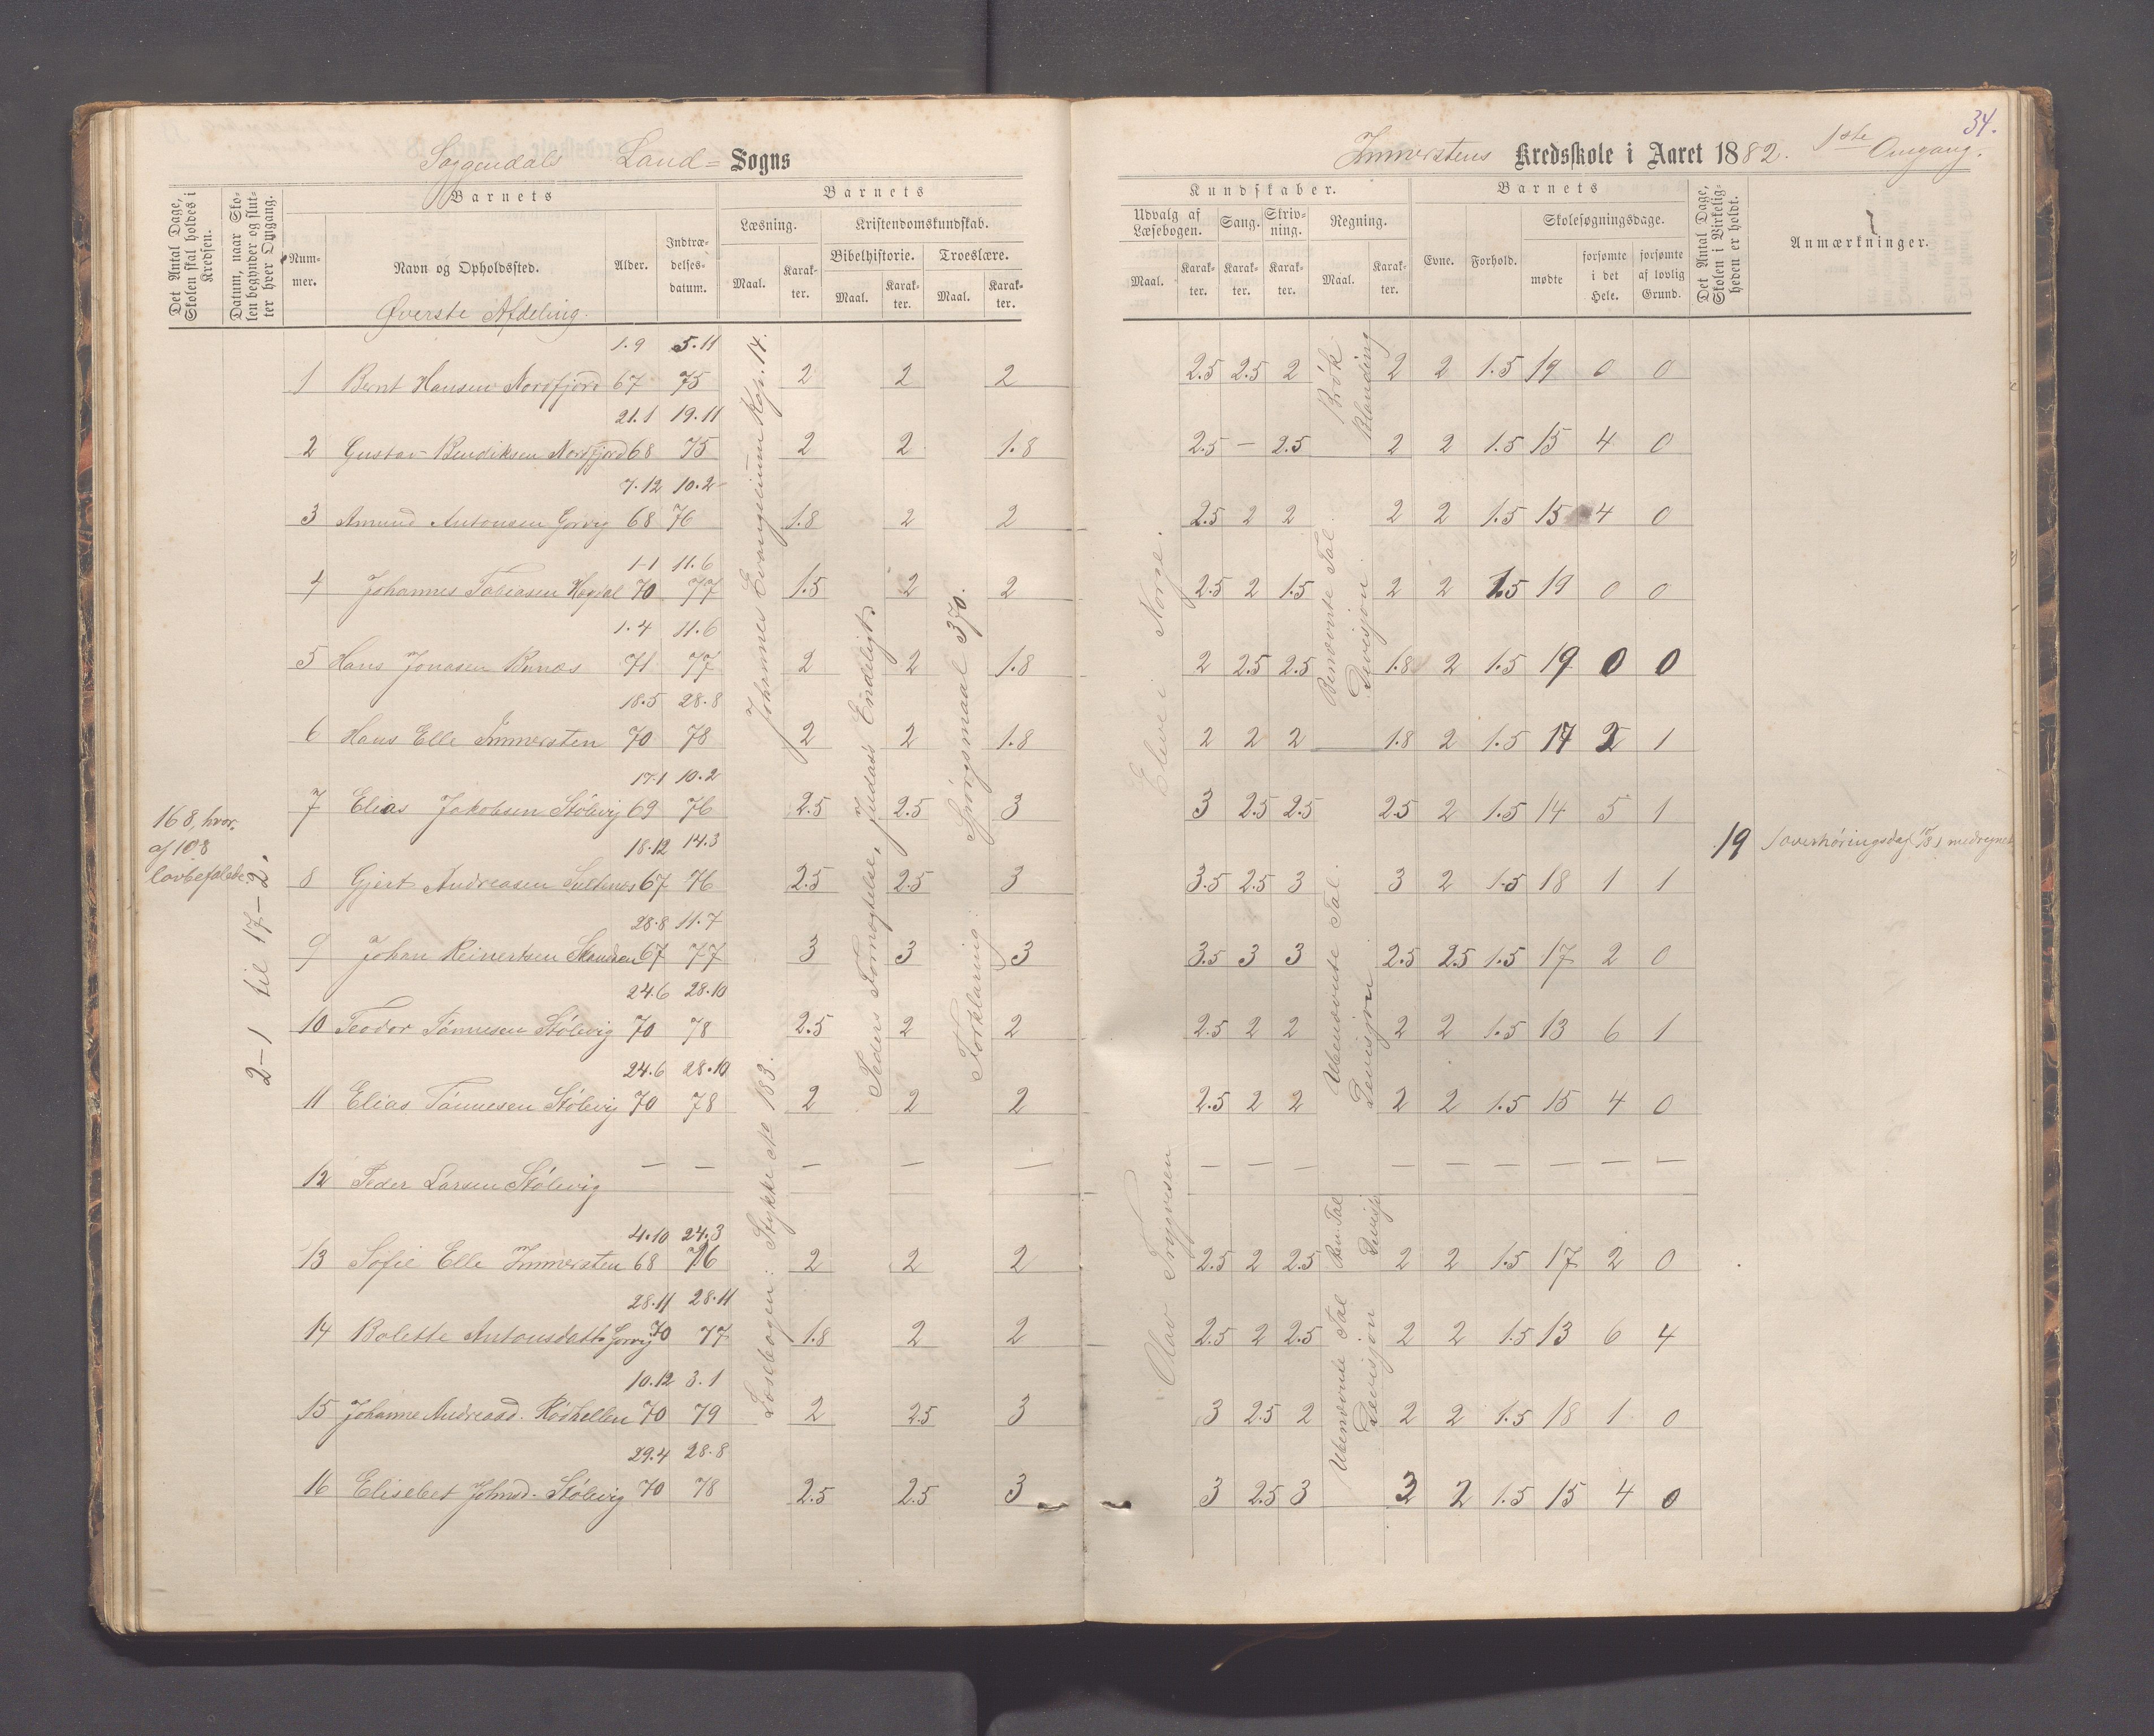 34.
Soggendals Land= Sogns
Immerstens Kredsskole i Aaret 1882. 1ste Omgang.
Det Antal Dage, Skolen skal holdes i Kredsen.
Datum, naar Skolen begynder og slutter hver Omgang.
Barnets
Nummer.
Navn og Opholdssted.
Alder.
Indtrædelsesdatum.
Barnets
Læsning.
Kristendomskundskab.
Bibelhistorie.
Troeslære.
Maal.
Karakter.
Maal.
Karakter.
Maal.
Karakter.
Kundskaber.
Udvalg af Læsebogen.
Sang.
Skrivning.
Regning.
Maal.
Karakter.
Karakter.
Karakter.
Maal.
Karakter.
Barnets
Evne.
Forhold.
Skolesøgningsdage.
mødte
forsømte i det Hele.
forsømte af lovlig Grund.
Det Antal Dage, Skolen i Virkeligheden er holdt.
Anmærkninger.
Øverste Afdeling.
1.9 5.11
1 Bernt Hansen Nordfjord 67 75 2 2 2 2.5 2.5 2 2 2 1.5 19 0 0
21.1 19.11
2 Gustav Bendiksen Nordfjord 68 75 2 2 1.8 2.5 — 2.5 2 2 1.5 15 4 0
7.12 10.2
3 Amund Antonsen Gorvig 68 76 1.8 2 2 2.5 2 2 2 2 1.5 15 4 0
1-1 11.6
4 Johannes Tobiasen Hogdal 70 77 1.5 2 2 2.5 2 1.5 2 2 1.5 19 0 0
1.4 11.6
5 Hans Jonasen Bunes 71 77 2 2 1.8 2 2.5 2.5 1.8 2 1.5 19 0 0
18.5 28.8
6 Hans Elle Immersten 70 78 2 2 1.8 2 2 2 1.8 2 1.5 17 2 1
17.1 10.2
7 Elias Jakobsen Stölevig 69 76 2.5 2.5 3 3 2.5 2.5 2.5 2 1.5 14 5 1
18.12 14.3
8 Gjert Andreasen 67 76 2.5 2.5 3 3.5 2.5 3 3 2 1.5 18 1 1
28.8 11.7
9 Johan Reinertsen 67 77 3 3 3 3.5 3 3 2.5 2.5 1.5 17 2 0
24.6 28.10
10 Teodor Tönnesen Stölevig 70 78 2.5 2 2 2.5 2 2 2 2 1.5 13 6 1
24.6 28.10
11 Elias Tönnesen Stölevig 70 78 2 2 2 2.5 2 2 2 2 1.5 15 4 0
12 Peder Larsen Stölevig — — — — — — — — — — — — — —
4.10 24.3
13 Sofie Elle Immersten 68 76 2 2 2 2.5 2 2.5 2 2 1.5 17 2 0
28.11 28.11
14 Bolette Antonsdatt. Gorvig 70 77 1.8 2 2 2.5 2 2.5 2 2 1.5 13 6 4
10.12 3.1
15 Johanne Andreasd. Rödhellen 70 79 2 2.5 3 3 2.5 2 2 2 1.5 18 1 0
29.4 28.8
16 Elisebet Johnsd. Stölevig 70 78 2.5 2.5 3 3 2.5 3 3 2 1.5 15 4 0
168, hvor-
af 108
lovbefalede.
2-1 til 17-2.
Johannes Evangelium Kap. 14.
Læsebogen: Stykke No 183.
Peders Fornegtelse, Judas's Endeligt.
Forklaring: Spörgsmaal 370.
Elve i Norge.
Olav Trygvesen
Brök
Blanding
Benevnte Tal.
Devisjon.
Ubenevnte Tal.
Devisjon
Ben. Tal
Devisjo
Ubenevnte Tal
Devisjon
19
1 overhöringsdag 17/81 medregnet